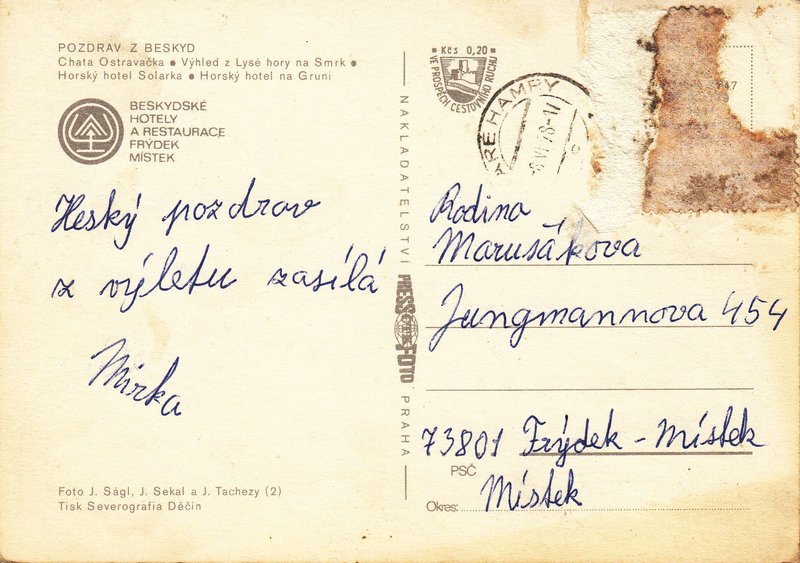 POZDRAV Z BESKYD
Chata Ostravačka • Výhled z Lysé hory na Smrk •
Horský hotel Solarka • Horský hotel na Gruni
BESKYDSKÉ
HOTELY
A RESTAURACE
FRÝDEK
MÍSTEK
Heský pozdrav
z výletu zasílá
Mirka
Foto J. Ságl, J. Sekal a J. Tachezy (2)
Tisk Severografia Děčín
NAKLADATELSTVÍ PRESSFOTO PRAHA
Kčs 0,20
VE PROSPĚCH CESTOVNÍHO RUCHU
STARÉ HAMRY
Rodina
Marusákova
Jungmannova 454
73801 Frýdek - Místek
PSČ
Místek
Okres: